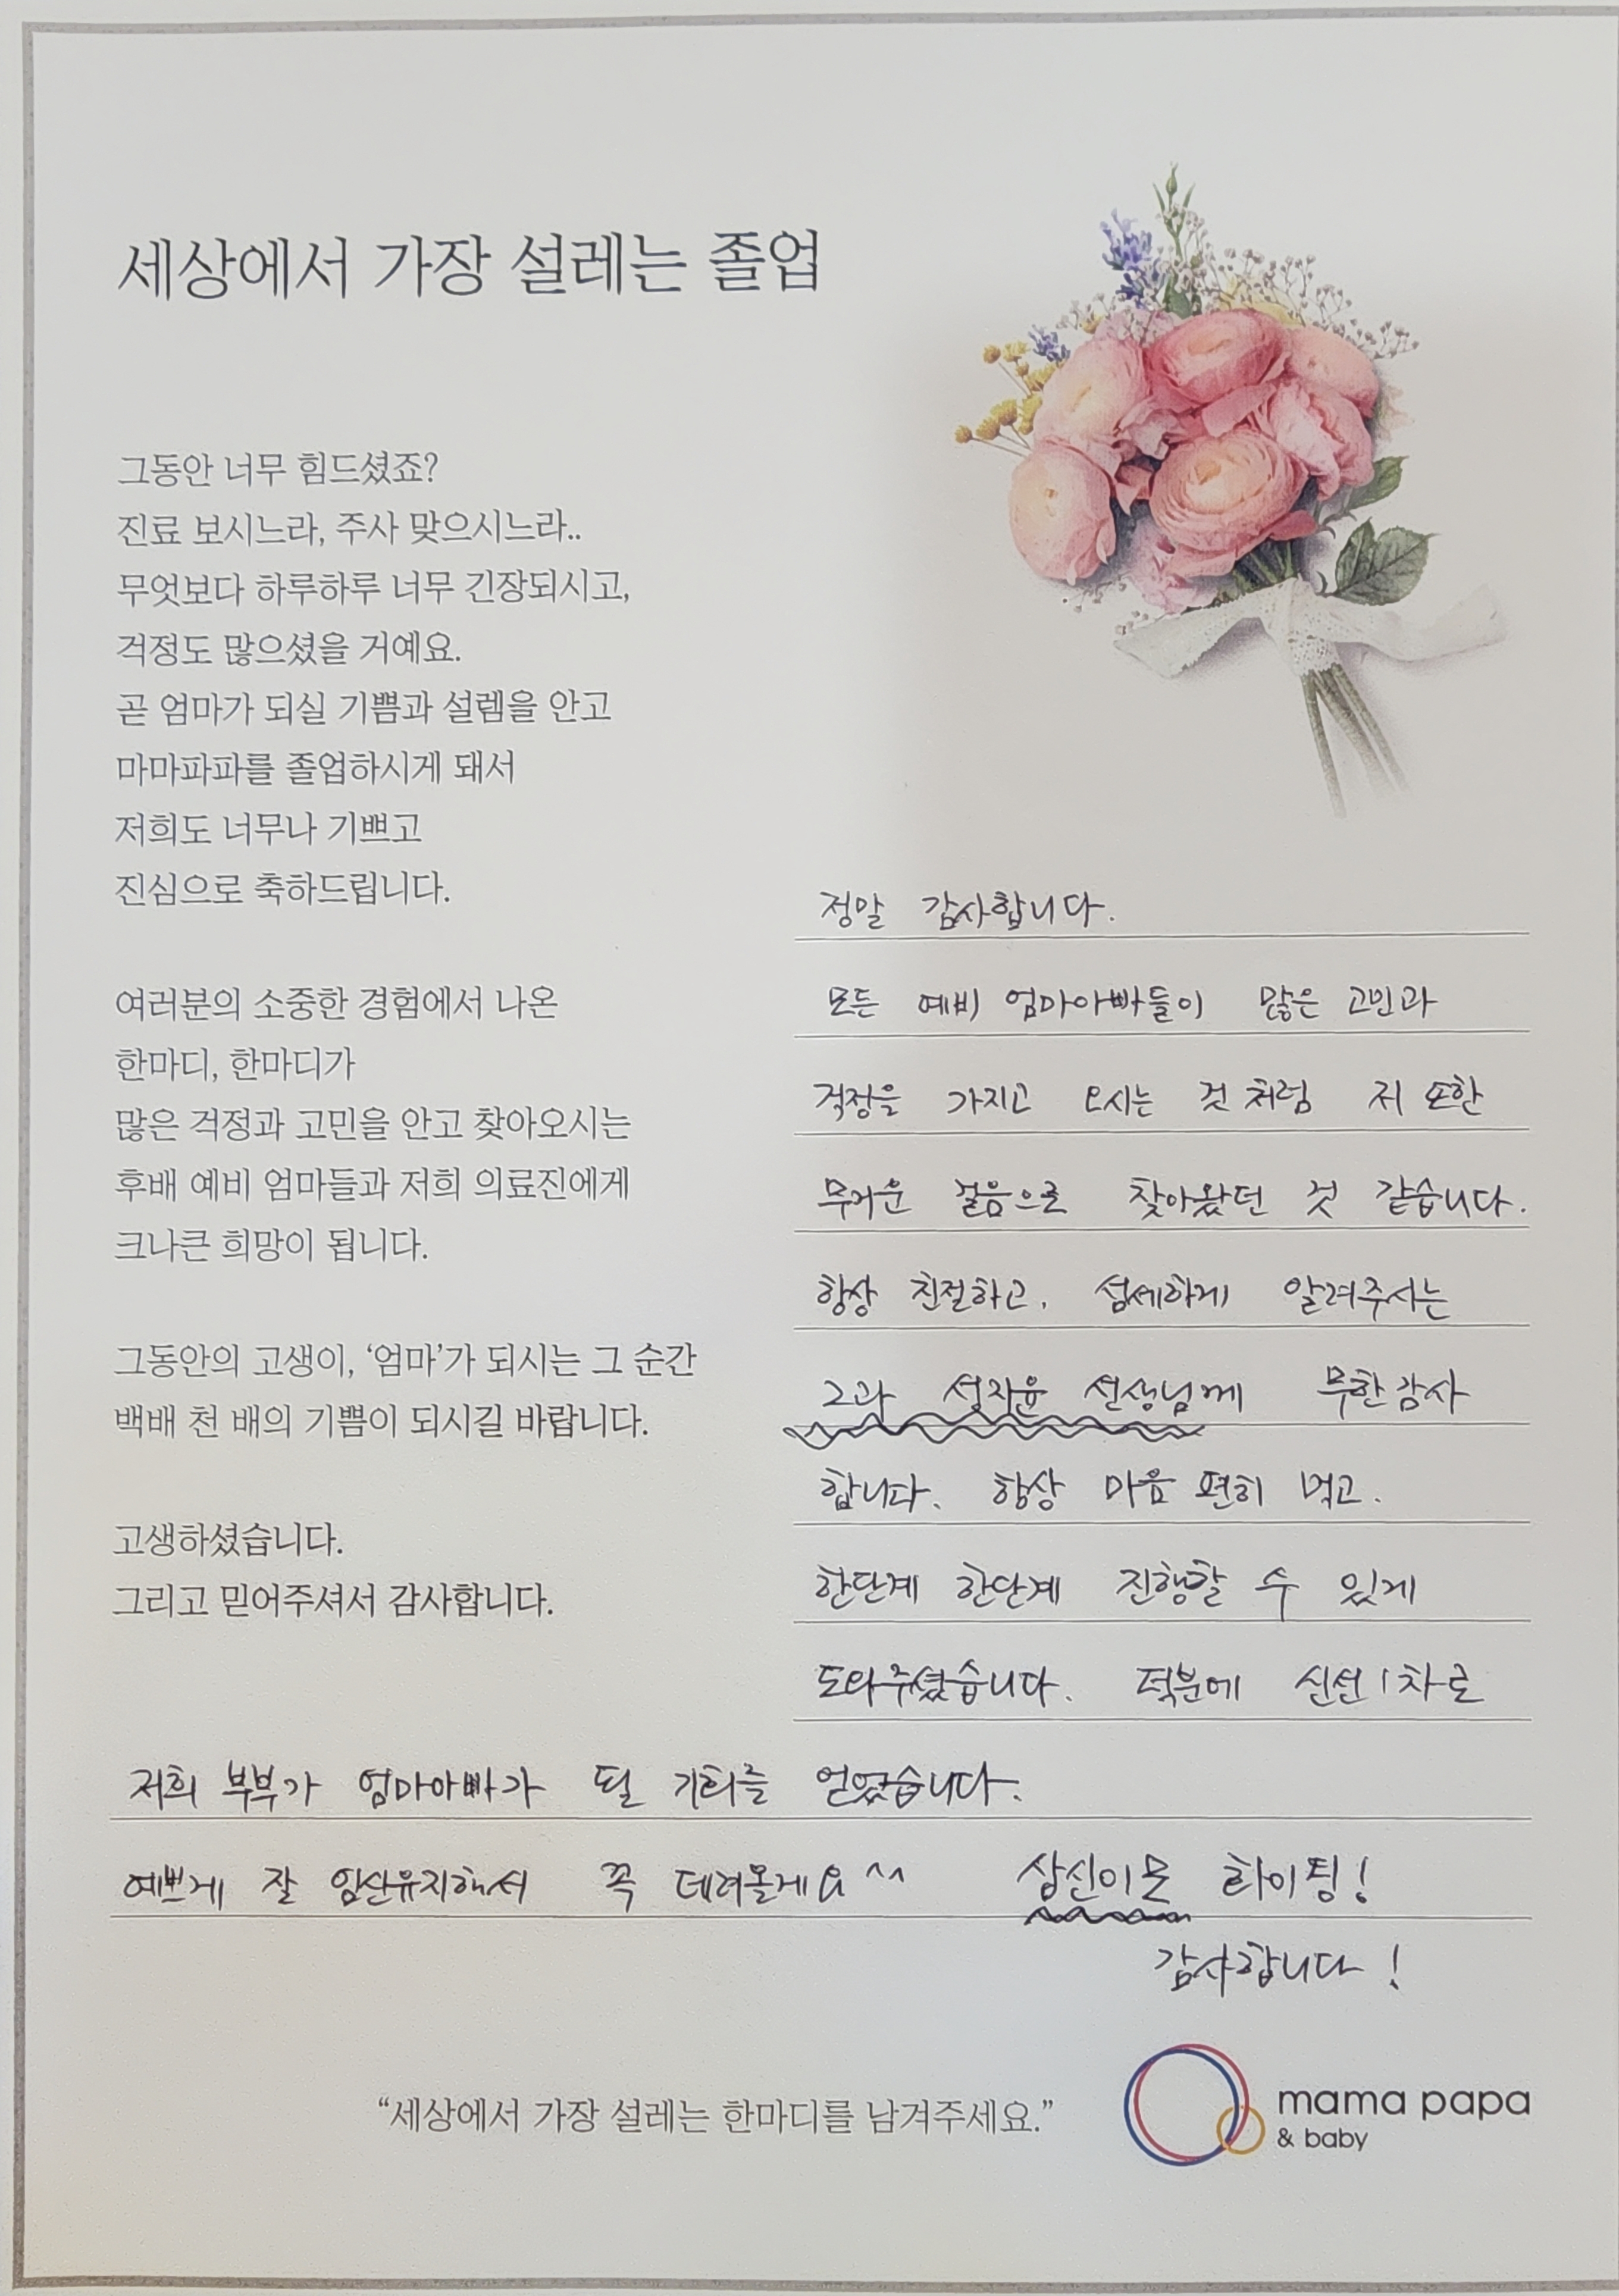 세상에서 가장 설레는 졸업
그동안 너무 힘드셨죠?
진료 보시느라, 주사 맞으시느라..
무엇보다 하루하루 너무 긴장되시고,
걱정도 많으셨을 거예요.
곧 엄마가 되실 기쁨과 설렘을 안고
마마파파를 졸업하시게 돼서
저희도 너무나 기쁘고
진심으로 축하드립니다.
여러분의 소중한 경험에서 나온
한마디, 한마디가
많은 걱정과 고민을 안고 찾아오시는
후배 예비 엄마들과 저희 의료진에게
크나큰 희망이 됩니다.
그동안의 고생이, ‘엄마’가 되시는 그 순간
백배 천 배의 기쁨이 되시길 바랍니다.
고생하셨습니다.
그리고 믿어주셔서 감사합니다.
정말 감사합니다.
모든 예비 엄마아빠들이 많은 고민과
걱정을 가지고 오시는 것 처럼 저 또한
무거운 걸음으로 찾아왔던 것 같습니다.
항상 친절하고, 섬세하게 알려주시는
2과 성지윤 선생님께 무한감사
합니다. 항상 마음 편히 먹고,
한단계 한단계 진행할 수 있게
도와주셨습니다. 덕분에 신선 1차로
저희 부부가 엄마아빠가 될 기회를 얻었습니다.
예쁘게 잘 임신유지해서 꼭 데려올게요^^ 삼신이문 화이팅!
감사합니다!
“세상에서 가장 설레는 한마디를 남겨주세요.”
mama papa
& baby